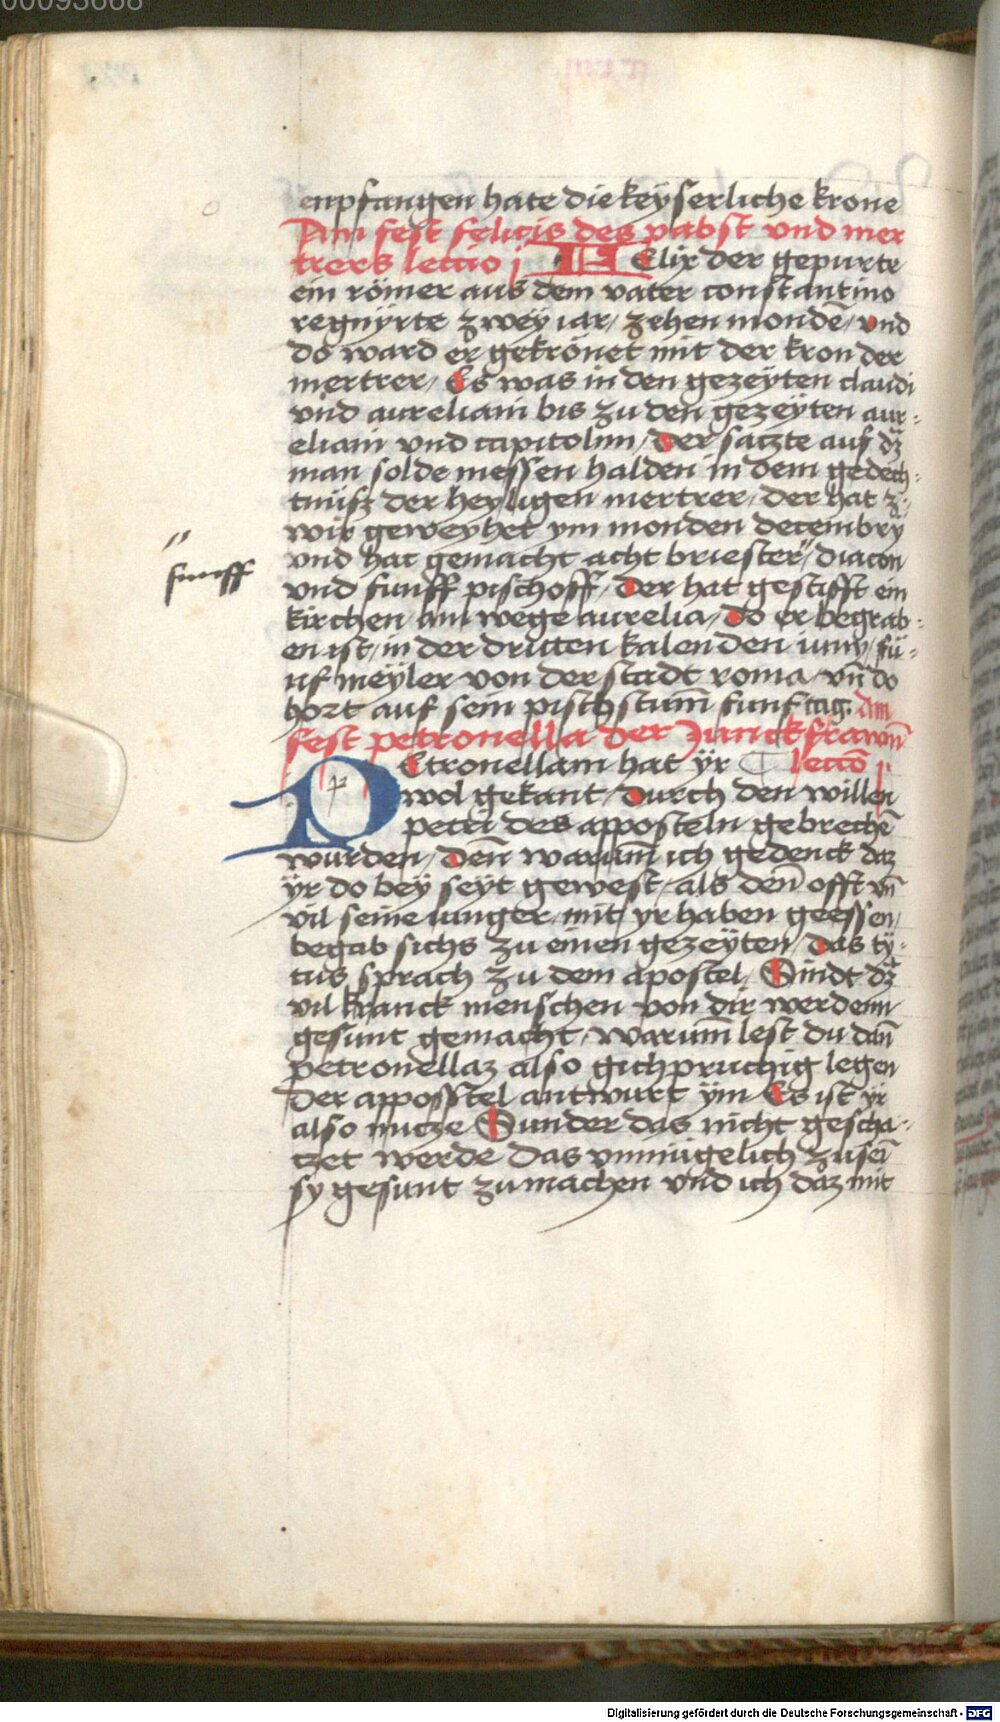 00093668
enpfangen hate die keyserliche krone
Am fest felicis des pabst vnd mer
trers lectio j FElix der gepurte
ein römer aus dem vater constantino
regnyrte zwey iar / zehen mondē / vnd
do ward er gekrönet mit der kron der
mertrer / Es was in den gezeyten claudi
vnd aureliani bis zu den gezeyten aur-
eliani vnd capitolini / der saczte auf dz
man solde messen halden in dem gedech-
tnüsz der heyligen mertrer / der hat z-
wir geweyhet ym monden decembry
vnd hat gemacht acht briester " diacon
" funff
vnd funff pischoff / der hat gestifft ein
kirchen am wege aurelia / do er begrab-
en ist / in der dritten kalenden iuny / fü-
nf meyler von der stadt roma / vn̄ do
hort auf sein pischstum̄ funf tag. Am
fest petronella der Junckfrawn̄
PEtronellam hat yr lectō j
wol gekant / durch den willen
petri des apposteln gebrechē
wurden / den̄ warum̄ ich gedenck daz
yr do bey seyt gewest / als den̄ offt vn̄
vil seine iunger / mit yr haben geessen /
begab sichs zu einen gezeyten / das ty-
tus sprach zu dem apostel / Sindt dz
vil kranck menschen von dir werdenn
gesunt gemacht / warum̄ lest du dan̄
petronellaz also gichpruchig legen
der apposstel antwurt ym Es ist yr
also nucze Sunder das nicht gescha-
czet werde das vnmügelich zu sei͞
sy gesunt zu machen vnd ich daz mit
Digitalisierung gefördert durch die Deutsche Forschungsgemeinschaft - DFG